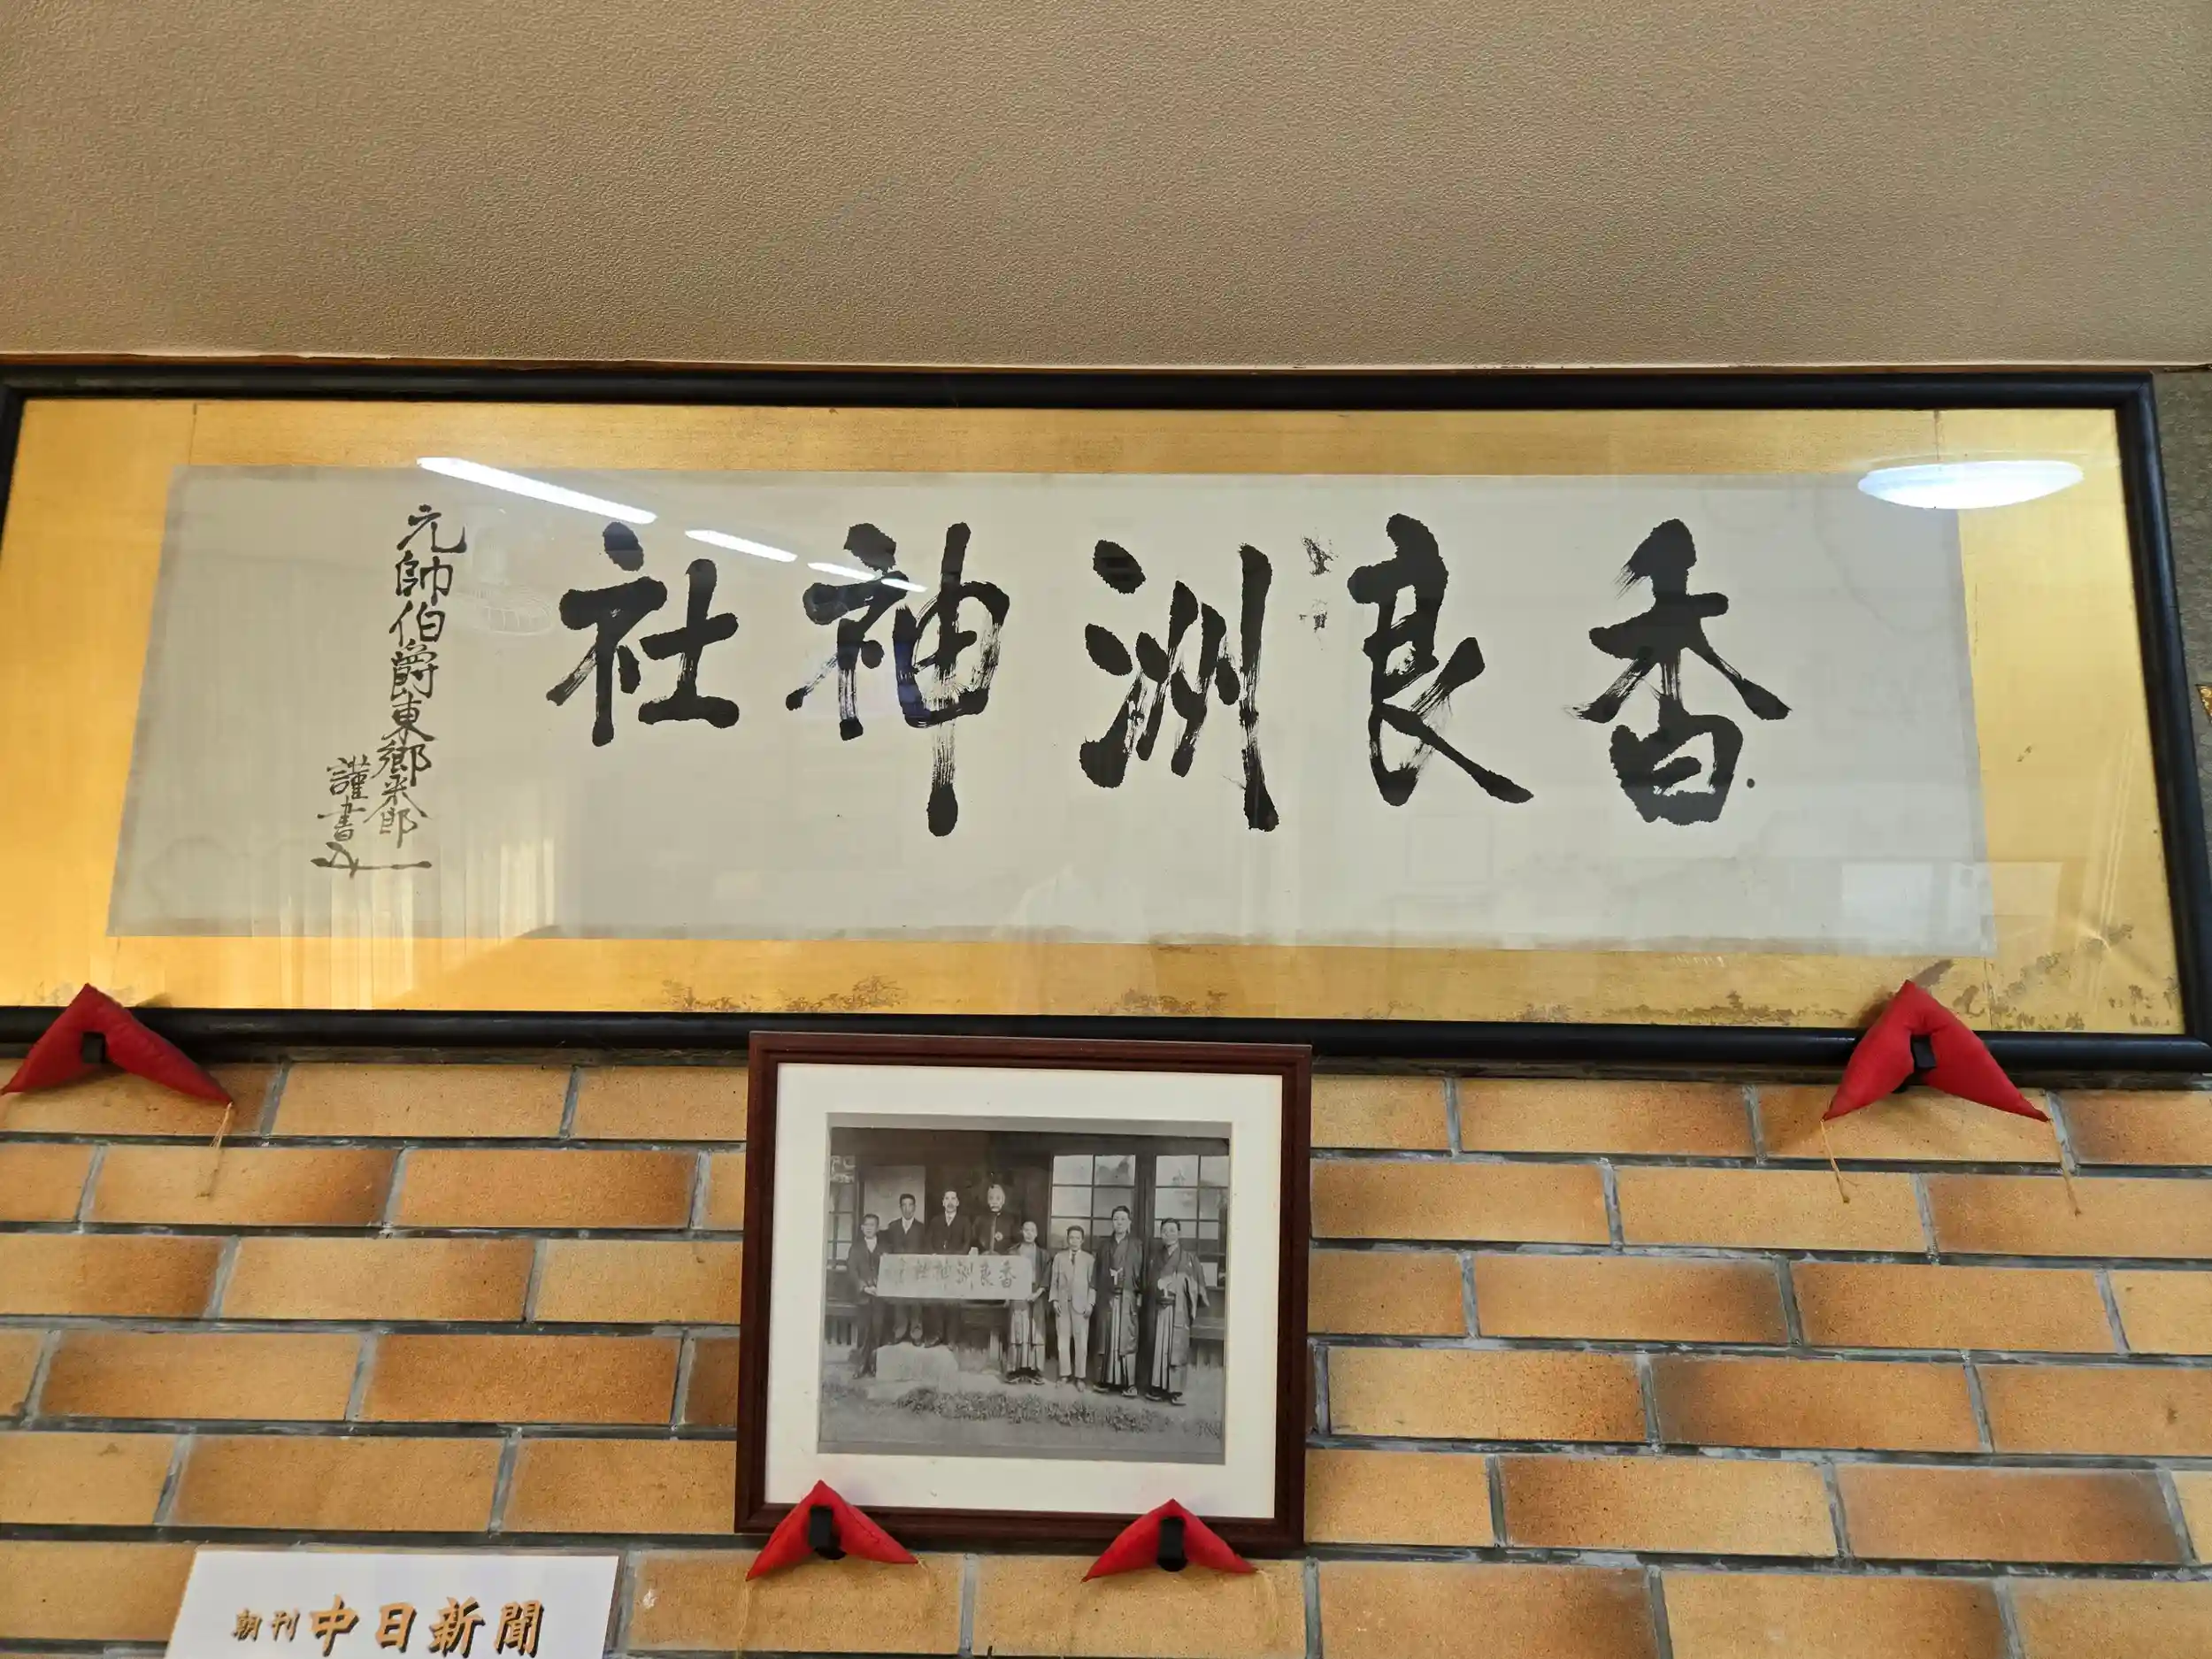 香良洲神社
元帥伯爵東郷平八郎
謹書
香良洲神社
朝刊 中日新聞